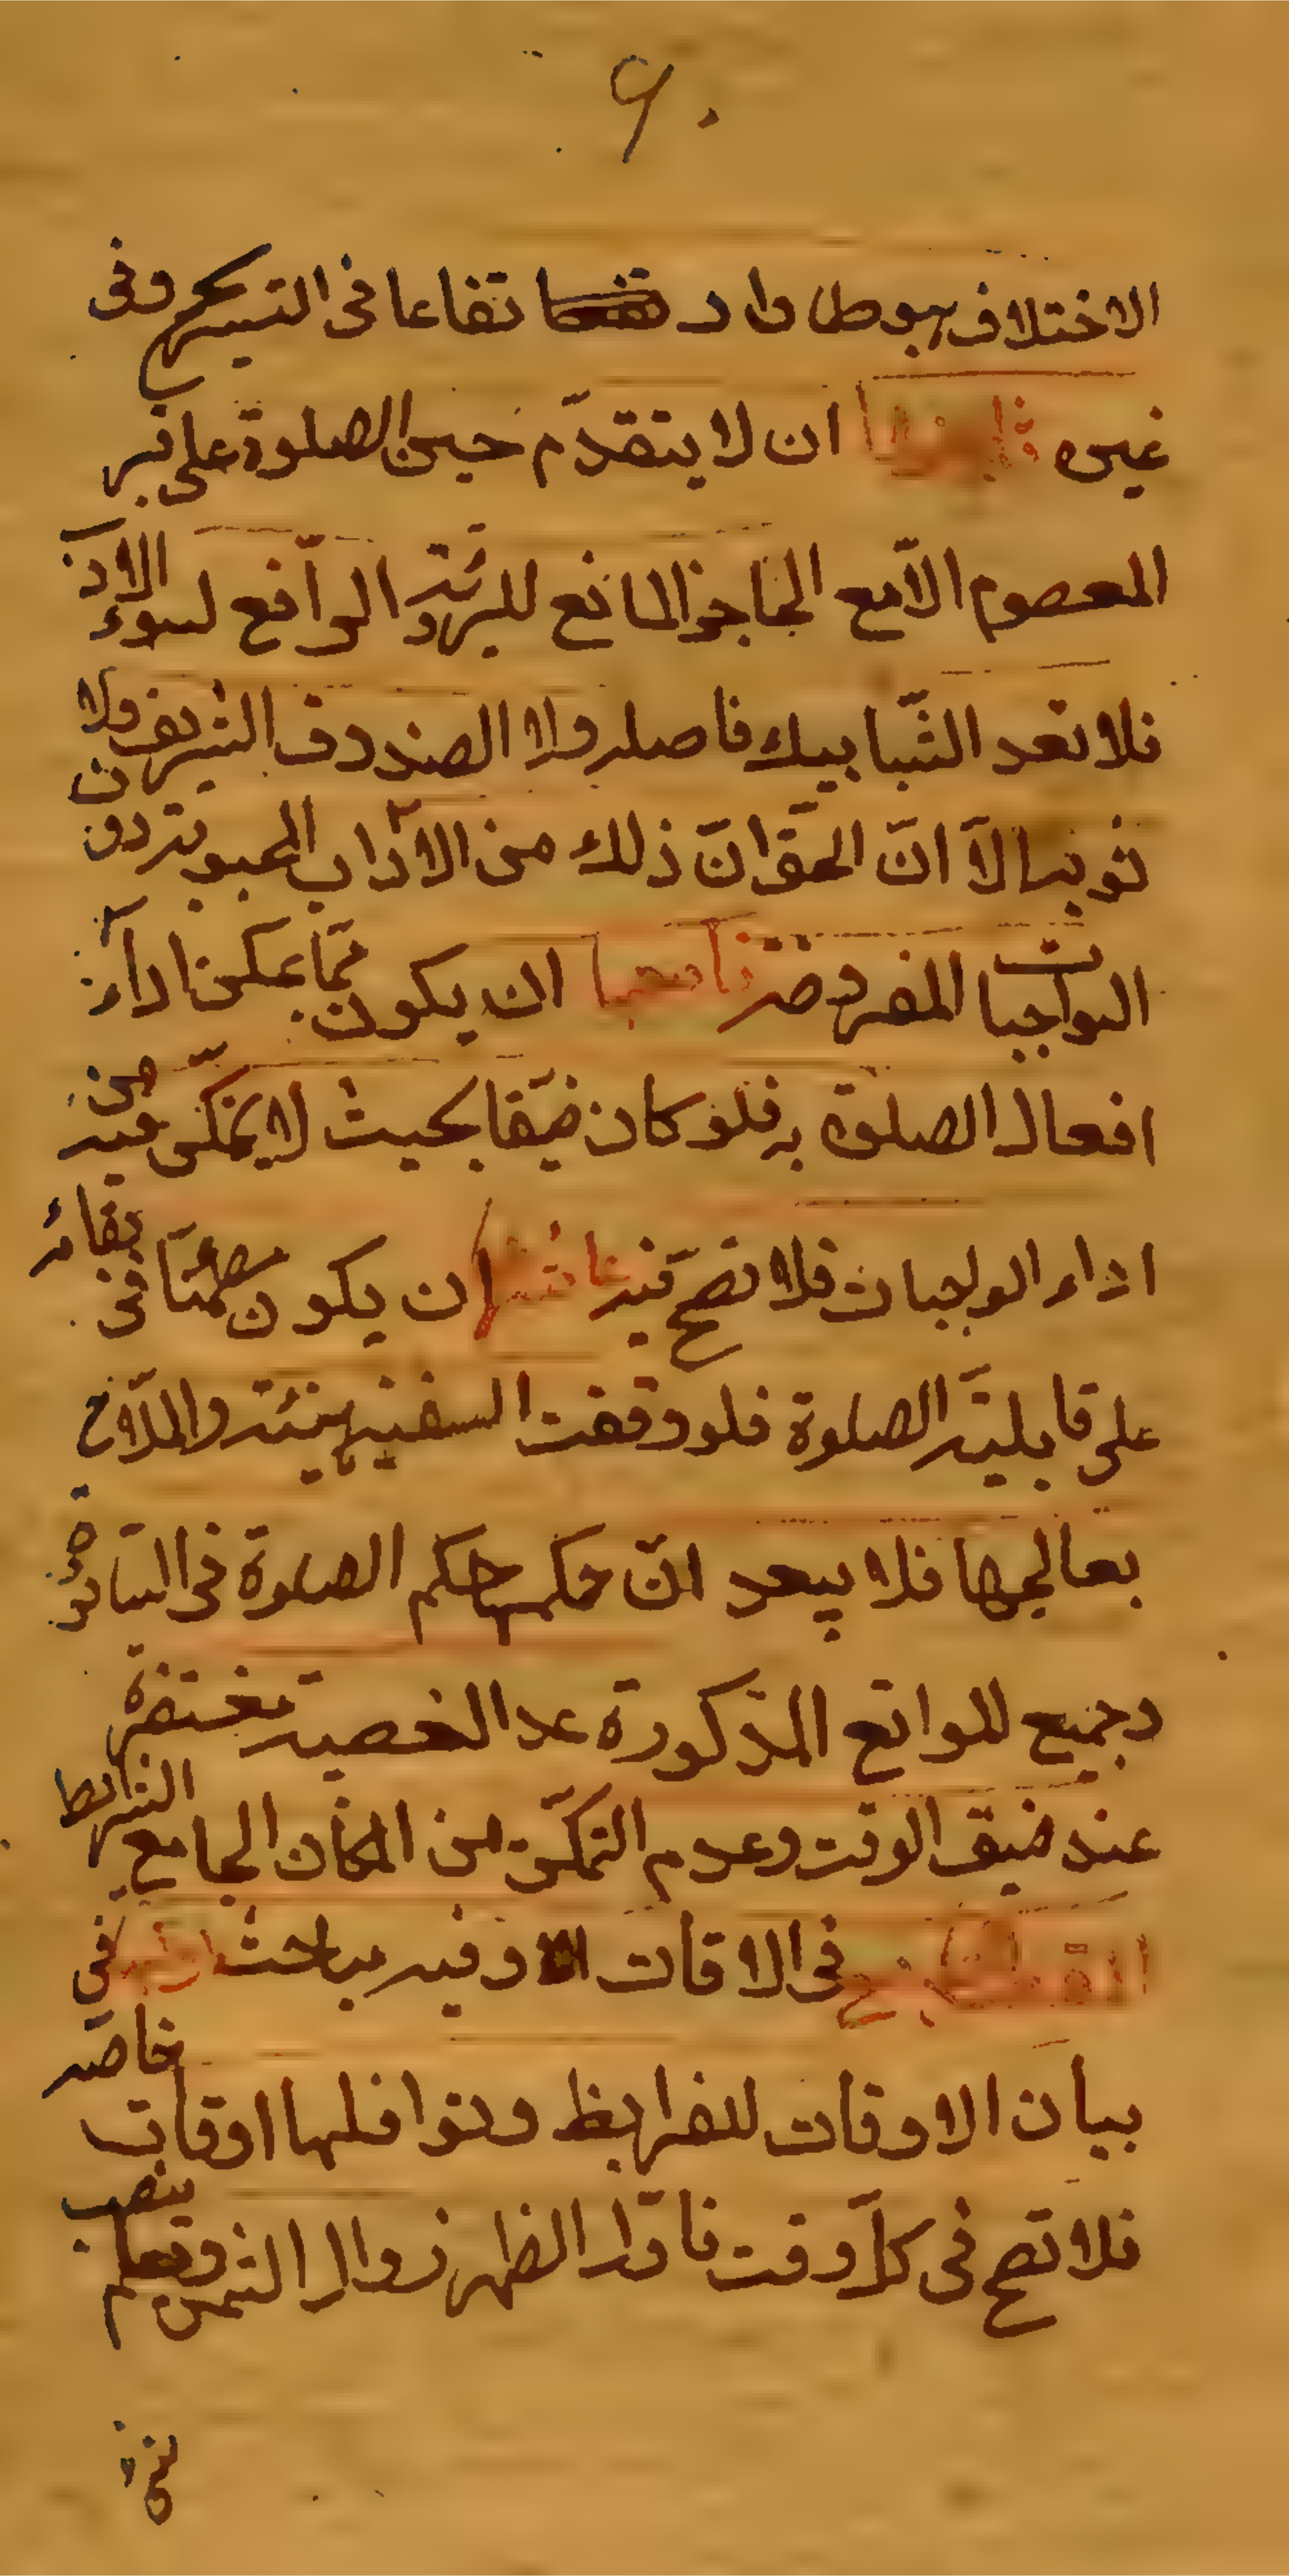 ٩٠
الاختلاف هبوطا واد تفاعا فى التسريح وفى
غيره ثامنها ان لا يتقدم حين الصلوة على قبر
المعصوم الا مع الحاجز المانع للرؤية الرافع لسوء الادب
فلا تعد الشبابيك فاصله ولا الصندوق الشريف ولا
ثوبها الا ان الحق ان ذلك من الآداب المحبوبة دون
الواجبات المفروضة تاسعها ان يكون مما يمكن اداء
افعال الصلوة به فلو كان ضيقا بحيث لا يتمكن فيه من
اداء الواجبات فلا تصح فيه عاشرها ان يكون مطمئنا فى بقائه
على قابلية الصلوة فلو وقفت السفينه بهيئته والملاح
يعالجها فلا يبعد ان حكمها حكم الصلوة فى السائرة
وجميع الموانع المذكورة عدا الغصبيه مغتفرة
عند ضيق الوقت وعدم التمكن من المكان الجامع الشرائط
فى الاوقات وفيه مباحث فى
بيان الاوقات للفرايض ونوافلها اوقات خاصه
فلا تصح فى كل وقت فاول الظهر زوال الشمس ويعلم بنصب